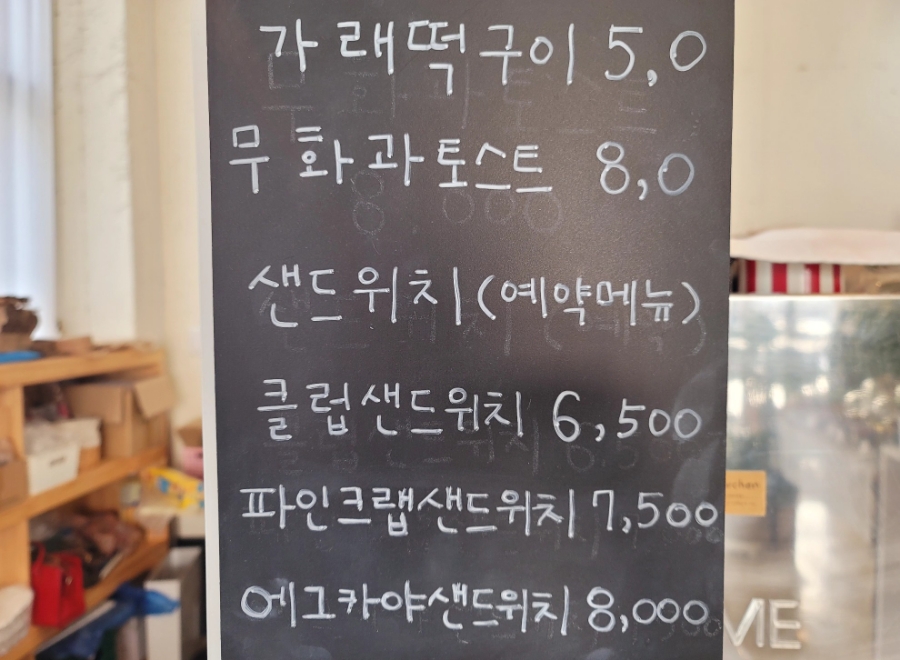 가래떡구이 5,0
무화과토스트 8,0
샌드위치(예약메뉴)
클럽샌드위치 6,500
파인크랩샌드위치 7,500
에그카야샌드위치 8,000
ME